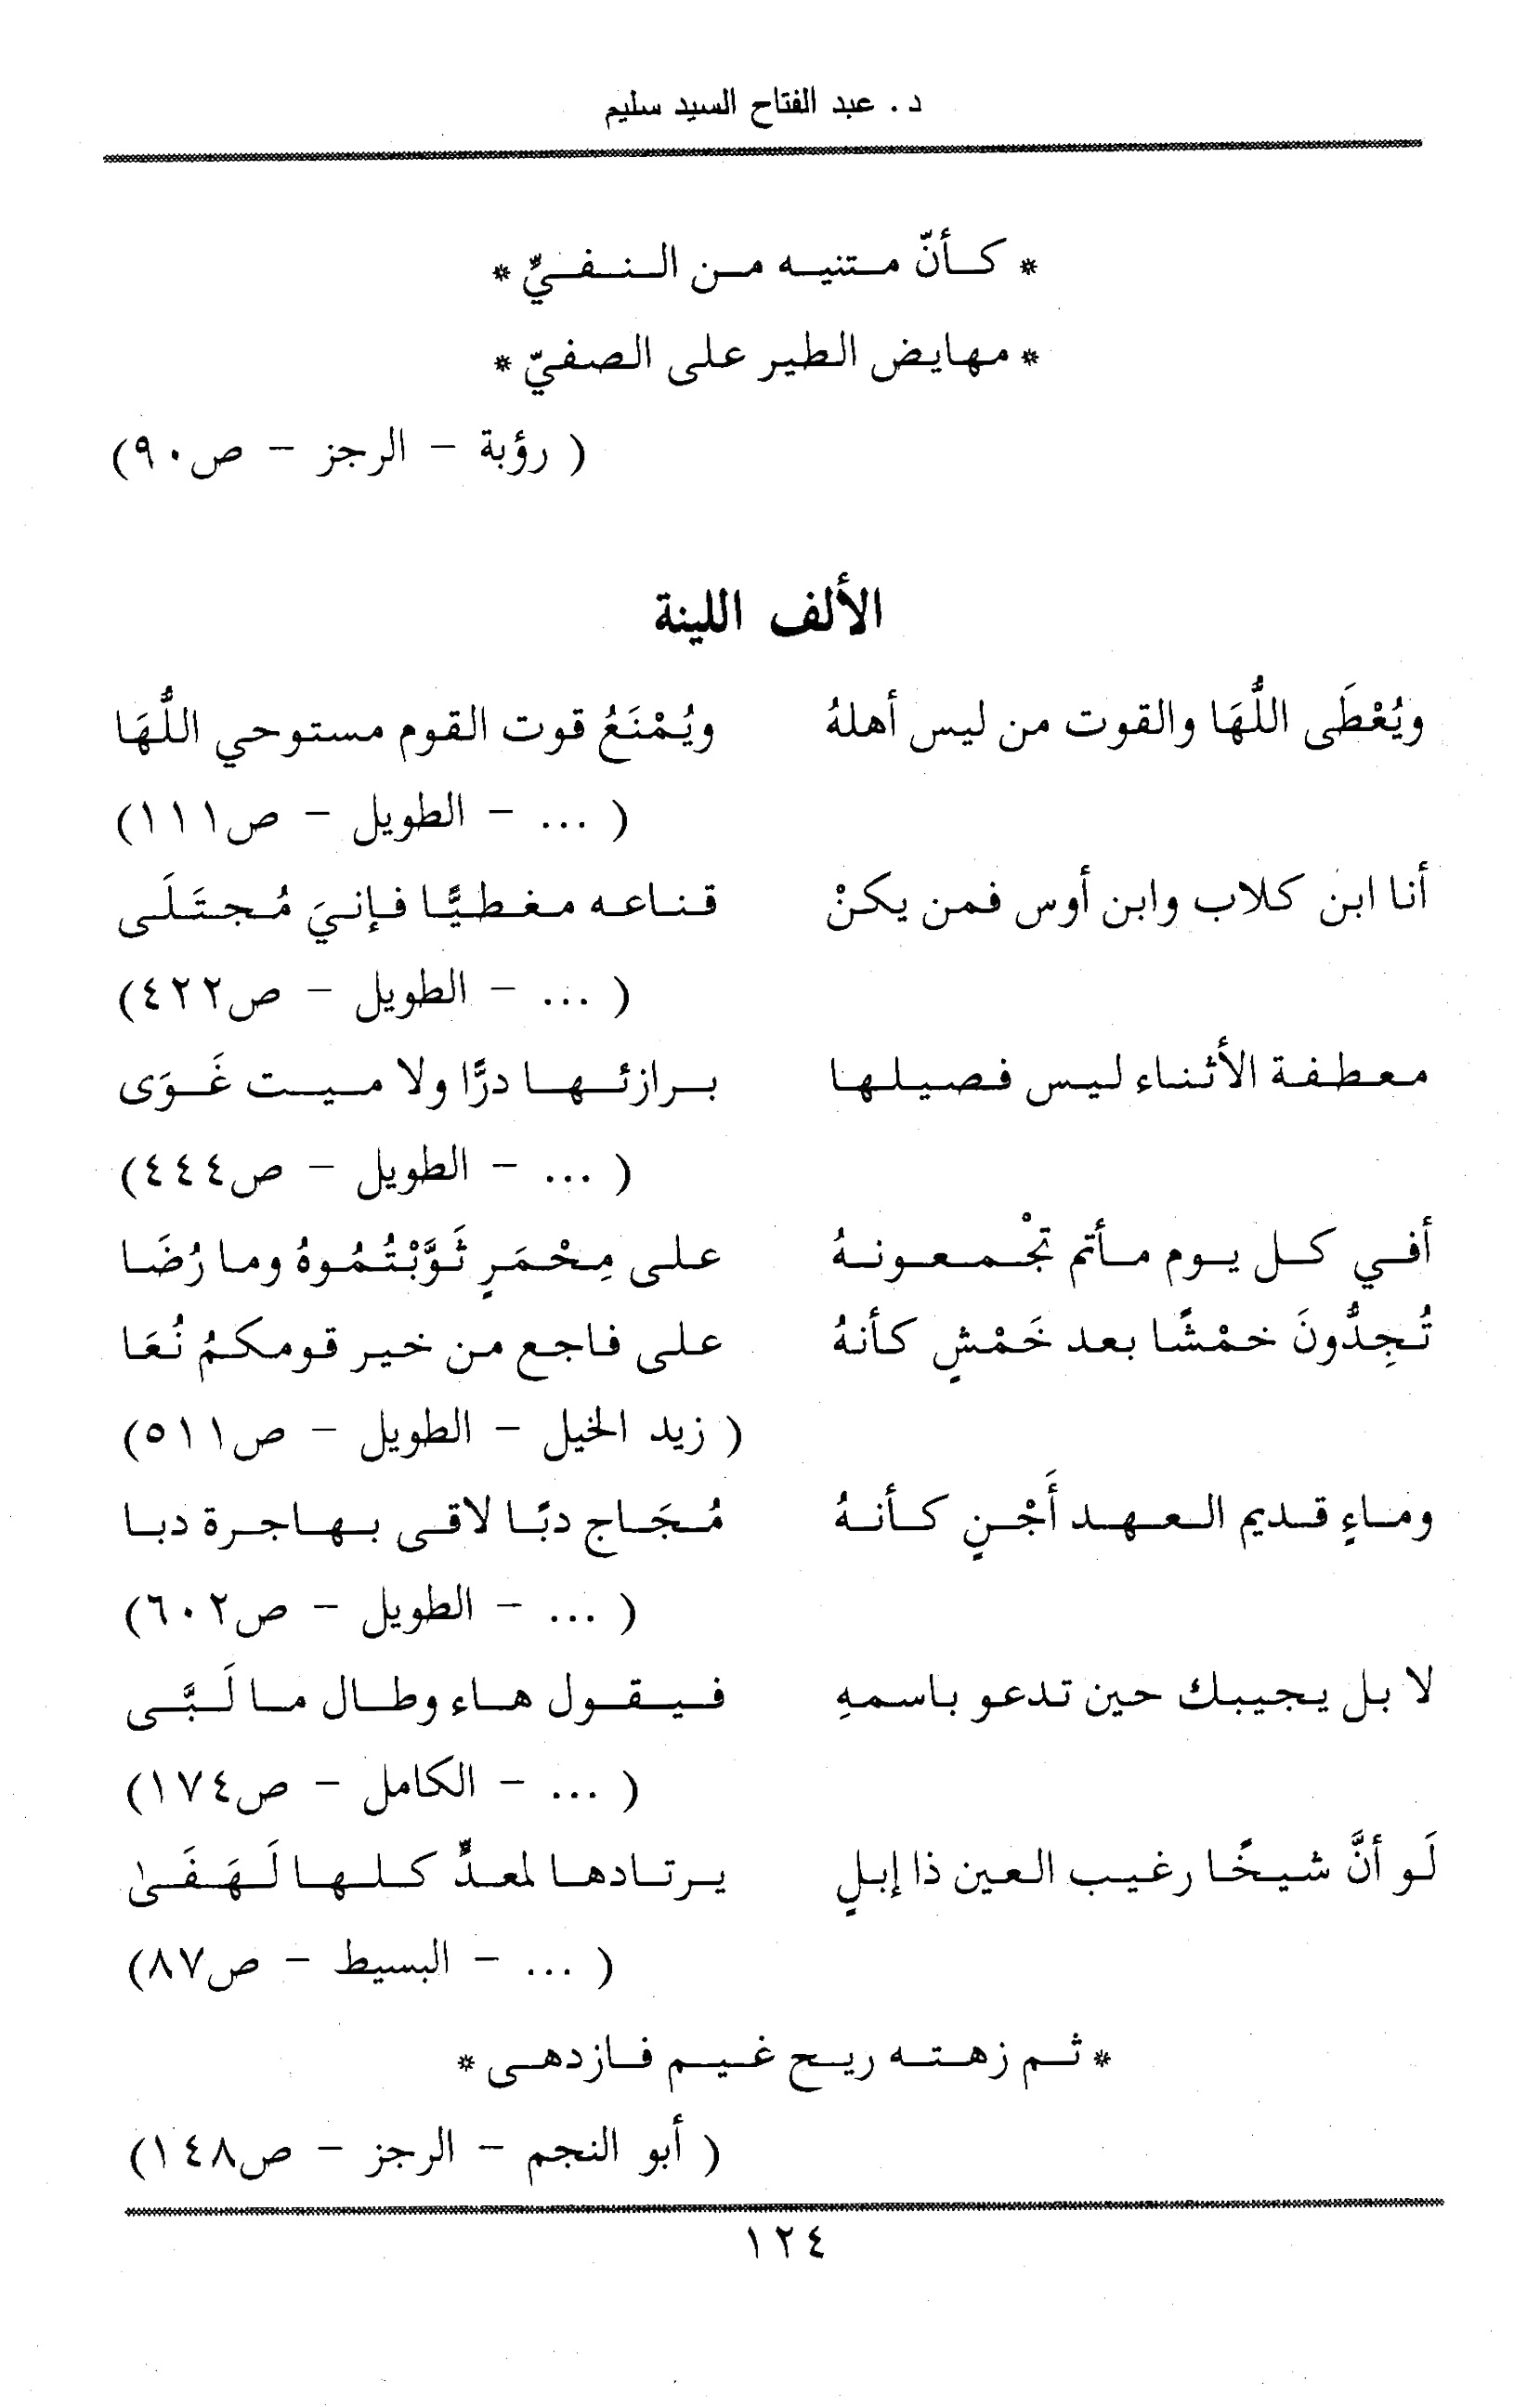 د. عبد الفتاح السيد سليم
* كـأنّ مـتنيـه مـن الـنـفـيِّ *
* مهايض الطير على الصفيّ *
( رؤبة - الرجز - ص٩٠)
الألف اللينة
ويُعْطَى اللُّهَا والقوت من ليس أهلهُ ويُمْنَعُ قوت القوم مستوحي اللُّهَا
( ... - الطويل - ص١١١)
أنا ابن كلاب وابن أوس فمن يكنْ قناعه مغطيًّا فإنيَ مُجتَلَى
( ... - الطويل - ص٤٢٢)
معطفة الأثناء ليس فصيلها برازئها درًّا ولا ميت غَوَى
( ... - الطويل - ص٤٤٤)
أفي كل يوم مأتم تجْمعونهُ على مِحْمَرٍ ثَوَّبْتُمُوهُ وما رُضَا
تُجِدُّونَ خمْشًا بعد خَمْشٍ كأنهُ على فاجع من خير قومكمُ نُعَا
( زيد الخيل - الطويل - ص٥١١)
وماءٍ قديم العهد أَجْنٍ كأنهُ مُجَاج دبًا لاقى بهاجرة دبا
( ... - الطويل - ص٦٠٢)
لا بل يجيبك حين تدعو باسمهِ فيقول هاء وطال ما لَبَّى
( ... - الكامل - ص١٧٤)
لَو أنَّ شيخًا رغيب العين ذا إبلٍ يرتادها لمعدٍّ كلها لَهَفَىٰ
( ... - البسيط - ص٨٧)
* ثم زهته ريح غيم فازدهى *
( أبو النجم - الرجز - ص١٤٨)
١٢٤